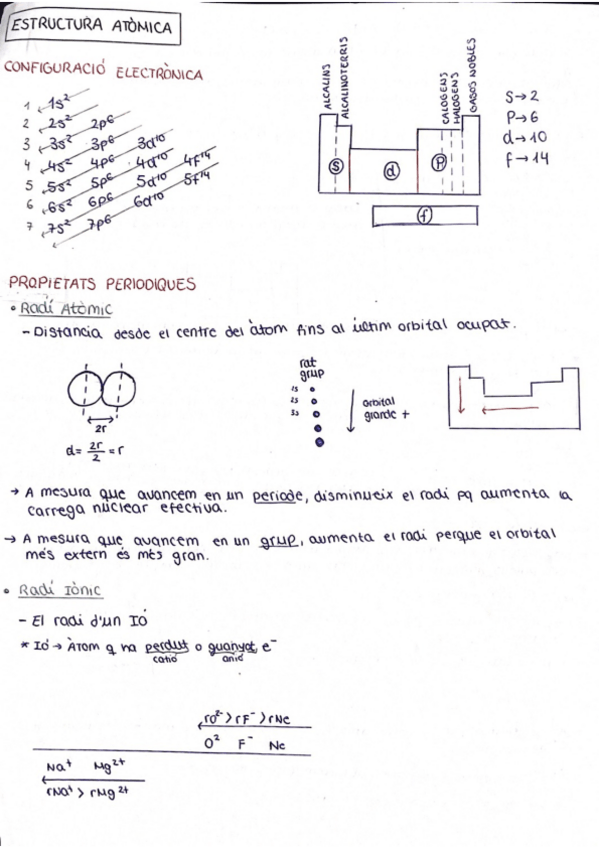 ESTRUCTURA ATÒMICA
CONFIGURACIÓ ELECTRÒNICA
1 1s²
2 2s² 2p⁶
3 3s² 3p⁶ 3d¹⁰
4 4s² 4p⁶ 4d¹⁰ 4f¹⁴
5 5s² 5p⁶ 5d¹⁰ 5f¹⁴
6 6s² 6p⁶ 6d¹⁰
7 7s² 7p⁶
ALCALINS
ALCALINOTERRIS
CALOGENS
HALOGENS
GASOS NOBLES
s d p
f
S→2
P→6
d→10
f→14
PROPIETATS PERIODIQUES
• Radi Atòmic
- Distancia desde el centre del àtom fins al últim orbital ocupat.
2r
d = 2r/2 = r
rat
grup
1s
2s
3s
orbital
grande +
→ A mesura que avancem en un periode, disminueix el radi pq aumenta la
carrega nuclear efectiva.
→ A mesura que avancem en un grup, aumenta el radi perque el orbital
més extern és més gran.
• Radi Iònic
- El radi d'un Ió
* Ió → Àtom q ha perdut o guanyat e⁻
catió anió
rO²⁻ > rF⁻ > rNe
O² F⁻ Ne
Na⁺ Mg²⁺
rNa⁺ > rMg²⁺